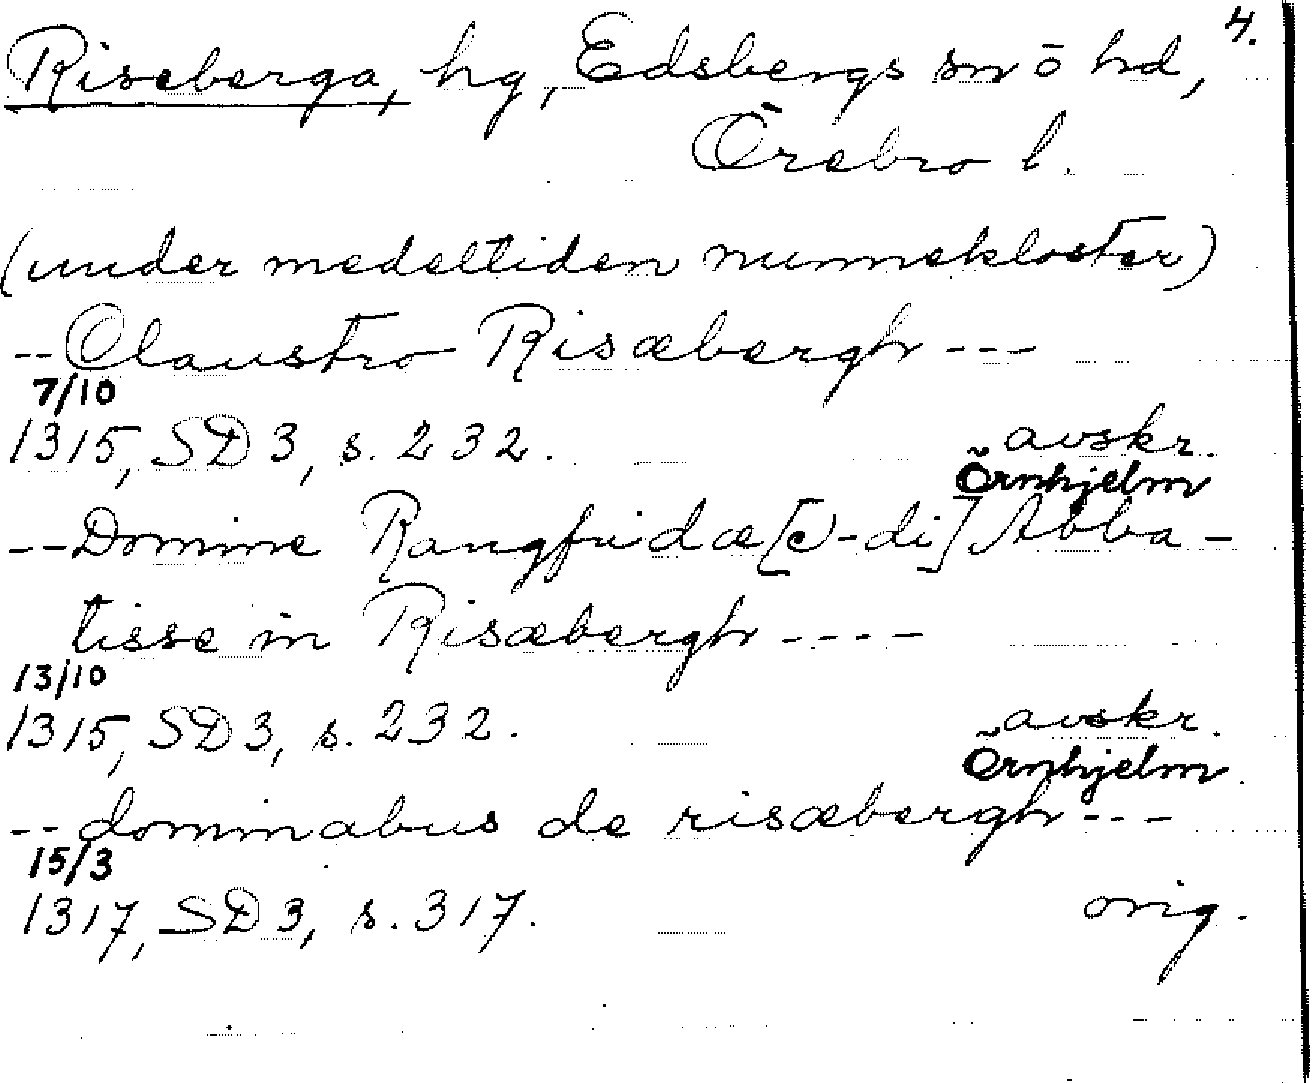 4.
Riseberga, hg, Edsbergs sn ō hd,
Örebro l.
(under medeltiden nunnekloster)
-- Claustro Risæbergh ---
7/10
1315, SD 3, s. 232. avskr.
Örnhjelm
-- Domine Rangfridæ [ɔ-di] Abba-
tisse in Risæbergh ----
13/10
1315, SD 3, s. 232. avskr.
Örnhjelm.
-- dominabus de risæbergh ---
15/3
1317, SD 3, s. 317. orig.